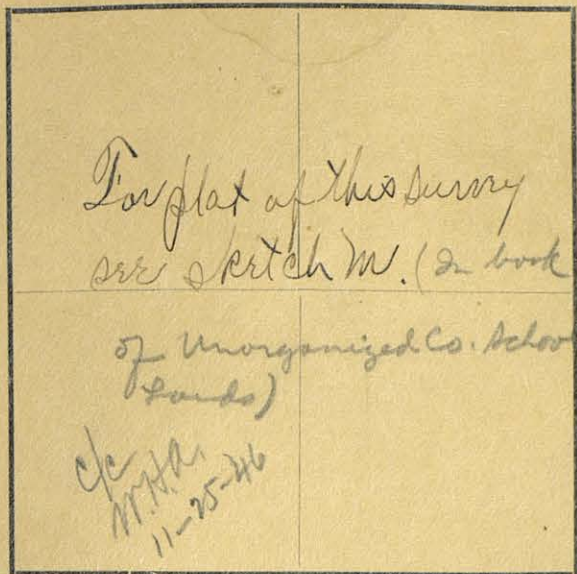 For plat of this survey
see sketch M. (In book
of Unorganized Co. School
Lands)
c/c
W.H.A.
11-25-46